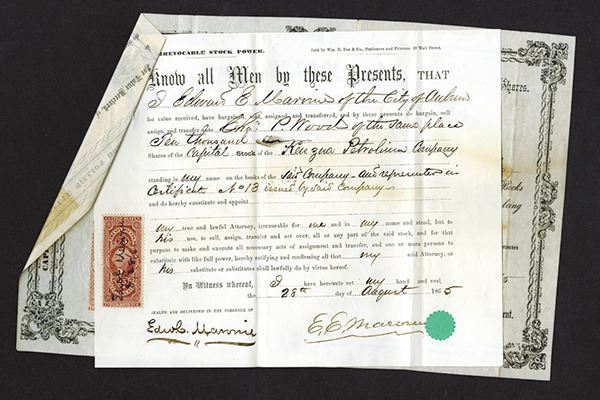 IRREVOCABLE STOCK POWER.
Sold by Wm. D. Roe & Co., Stationers and Printers, 19 Wall Street.
Know all Men by these Presents, THAT
I Edward E. Marvine of the City of Auburn
for value received, have bargained, sold, assigned and transferred, and by these presents do bargain, sell
assign, and transfer unto Chas P. Wood of the same place
Ten thousand
Shares of the Capital Stock of the Kenzua Petrolium Company
standing in my name on the books of the said Company and represented in
Certificate No 13 issued by said Company
and do hereby constitute and appoint
my true and lawful Attorney, irrevocable for me and in my name and stead, but to
his use, to sell, assign, transfer and set over, all or any part of the said stock, and for that
purpose to make and execute all necessary acts of assignment and transfer, and one or more persons to
substitute with like full power, hereby ratifying and confirming all that my said Attorney, or
his substitute or substitutes shall lawfully do by virtue hereof.
In Witness whereof, I have hereunto set my hand and seal
the 28th day of August 1865
SEALED AND DELIVERED IN THE PRESENCE OF
Edw E. Marvine
E. E. Marvine
Shares.